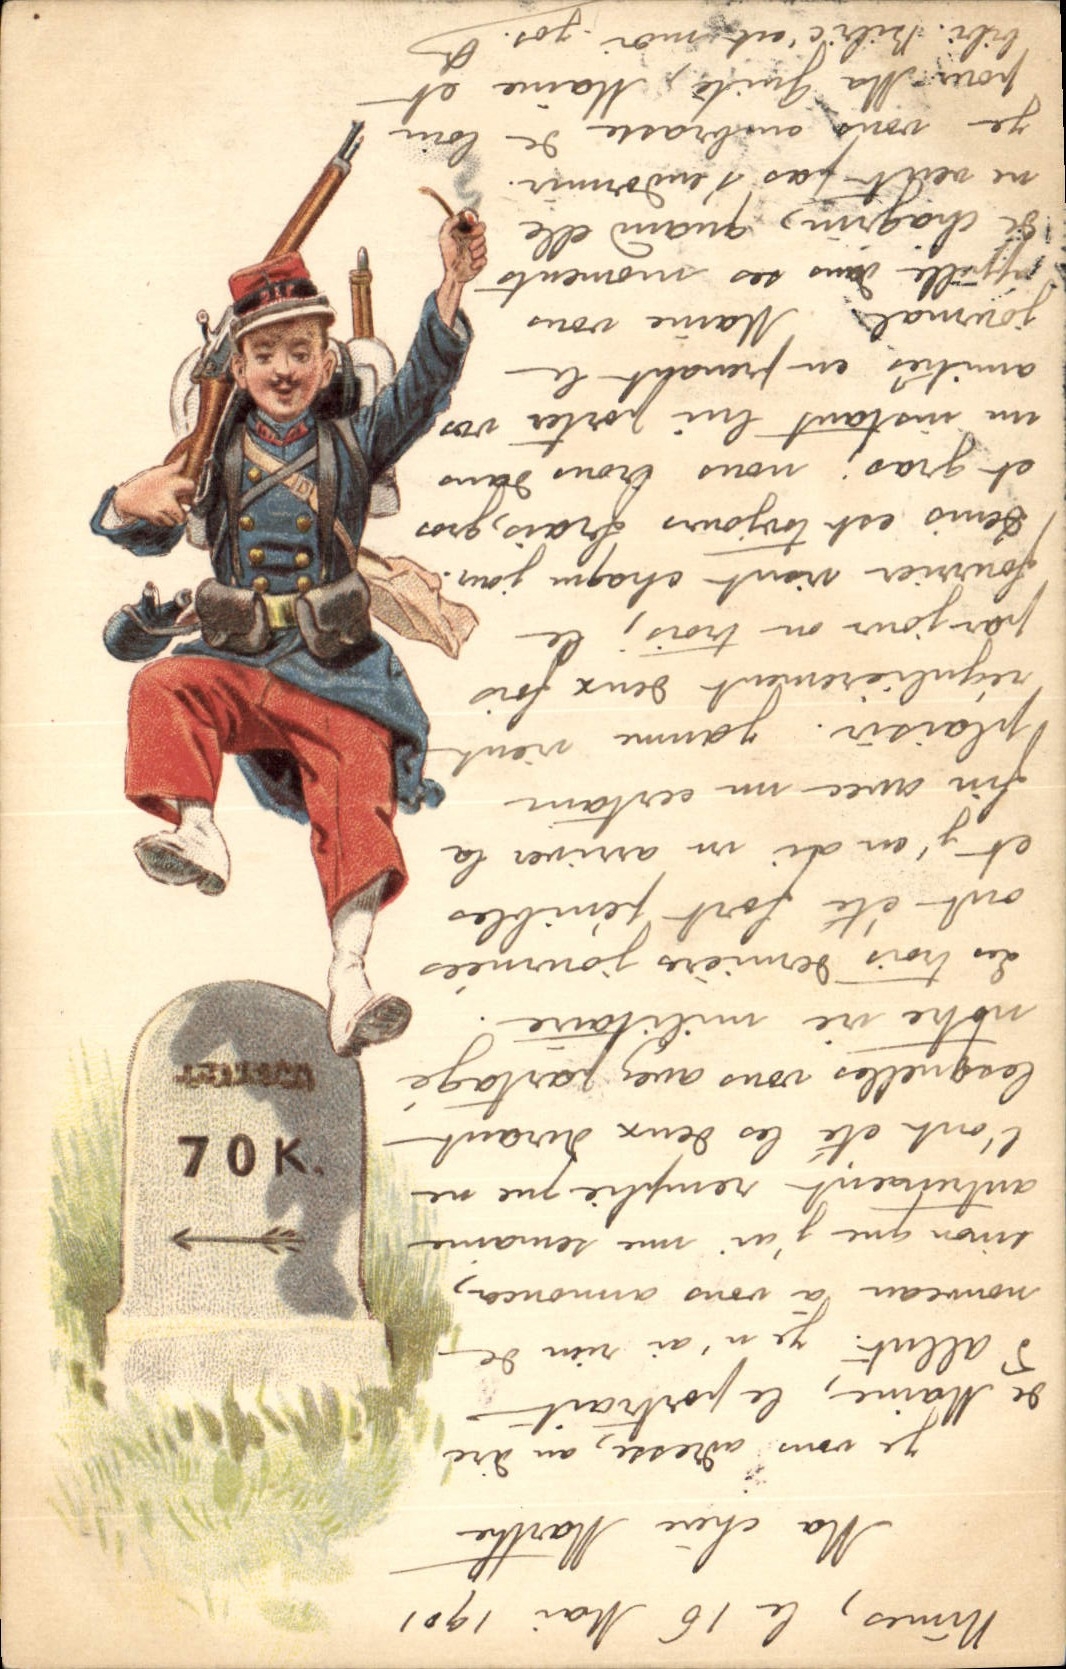 Nîmes, le 16 Mai 1901
Ma chère Marthe
Je vous adresse, au dire
de Mairie, le portrait
d'allut. Je n'ai rien de
nouveau à vous annoncer,
sinon que j'ai une semaine
autrement remplie que ne
l'ont été les deux durant
lesquelles vous avez partagé
notre vie militaire.
Les trois dernières journées
ont été fort pénibles
et j'en ai vu arriver la
fin avec un certain
plaisir. Jamme vient
régulièrement deux fois
par jour ou trois, le
fourrier vient chaque jour.
Denis est toujours frais, gros
et gras; nous irons dans
un instant lui porter vos
amitiés en prenant le
journal. Mairie vous
appelle dans ses moments
de chagrin, quand elle
ne veut pas s'endormir.
Je vous embrasse de loin
pour Ma Guite, Mairie et
bibi. Bibi c'est moi. Jos.
70 K.